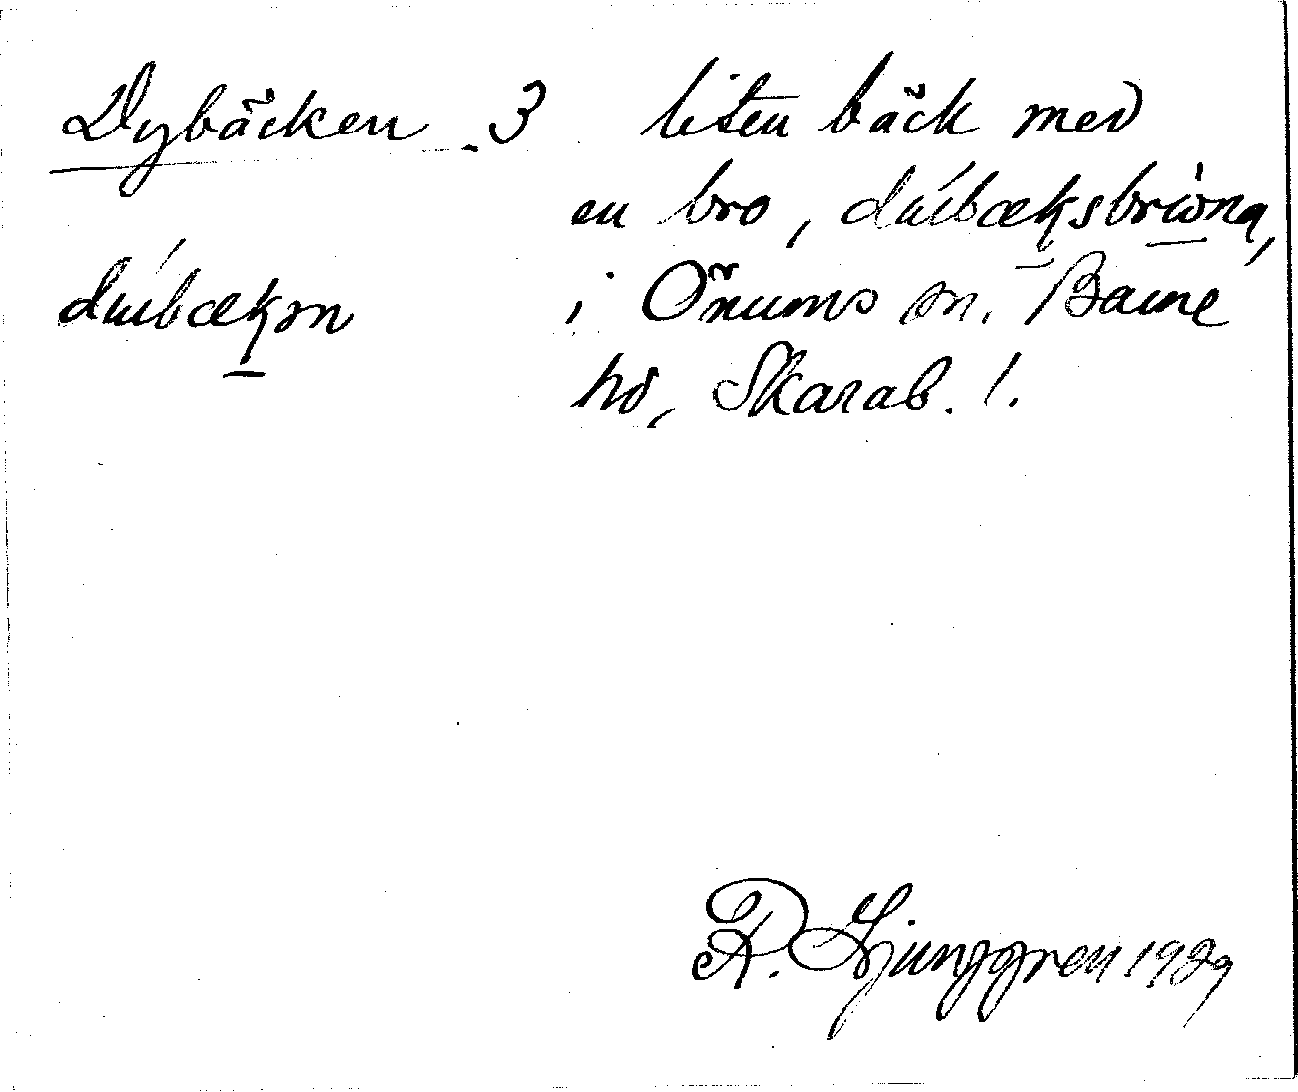 Dybäcken 3 liten bäck med
en bro, duíbæksbrωna,
duíbækən i Önums sn. Barne
hd, Skarab. l.
R. Ljunggren 1929